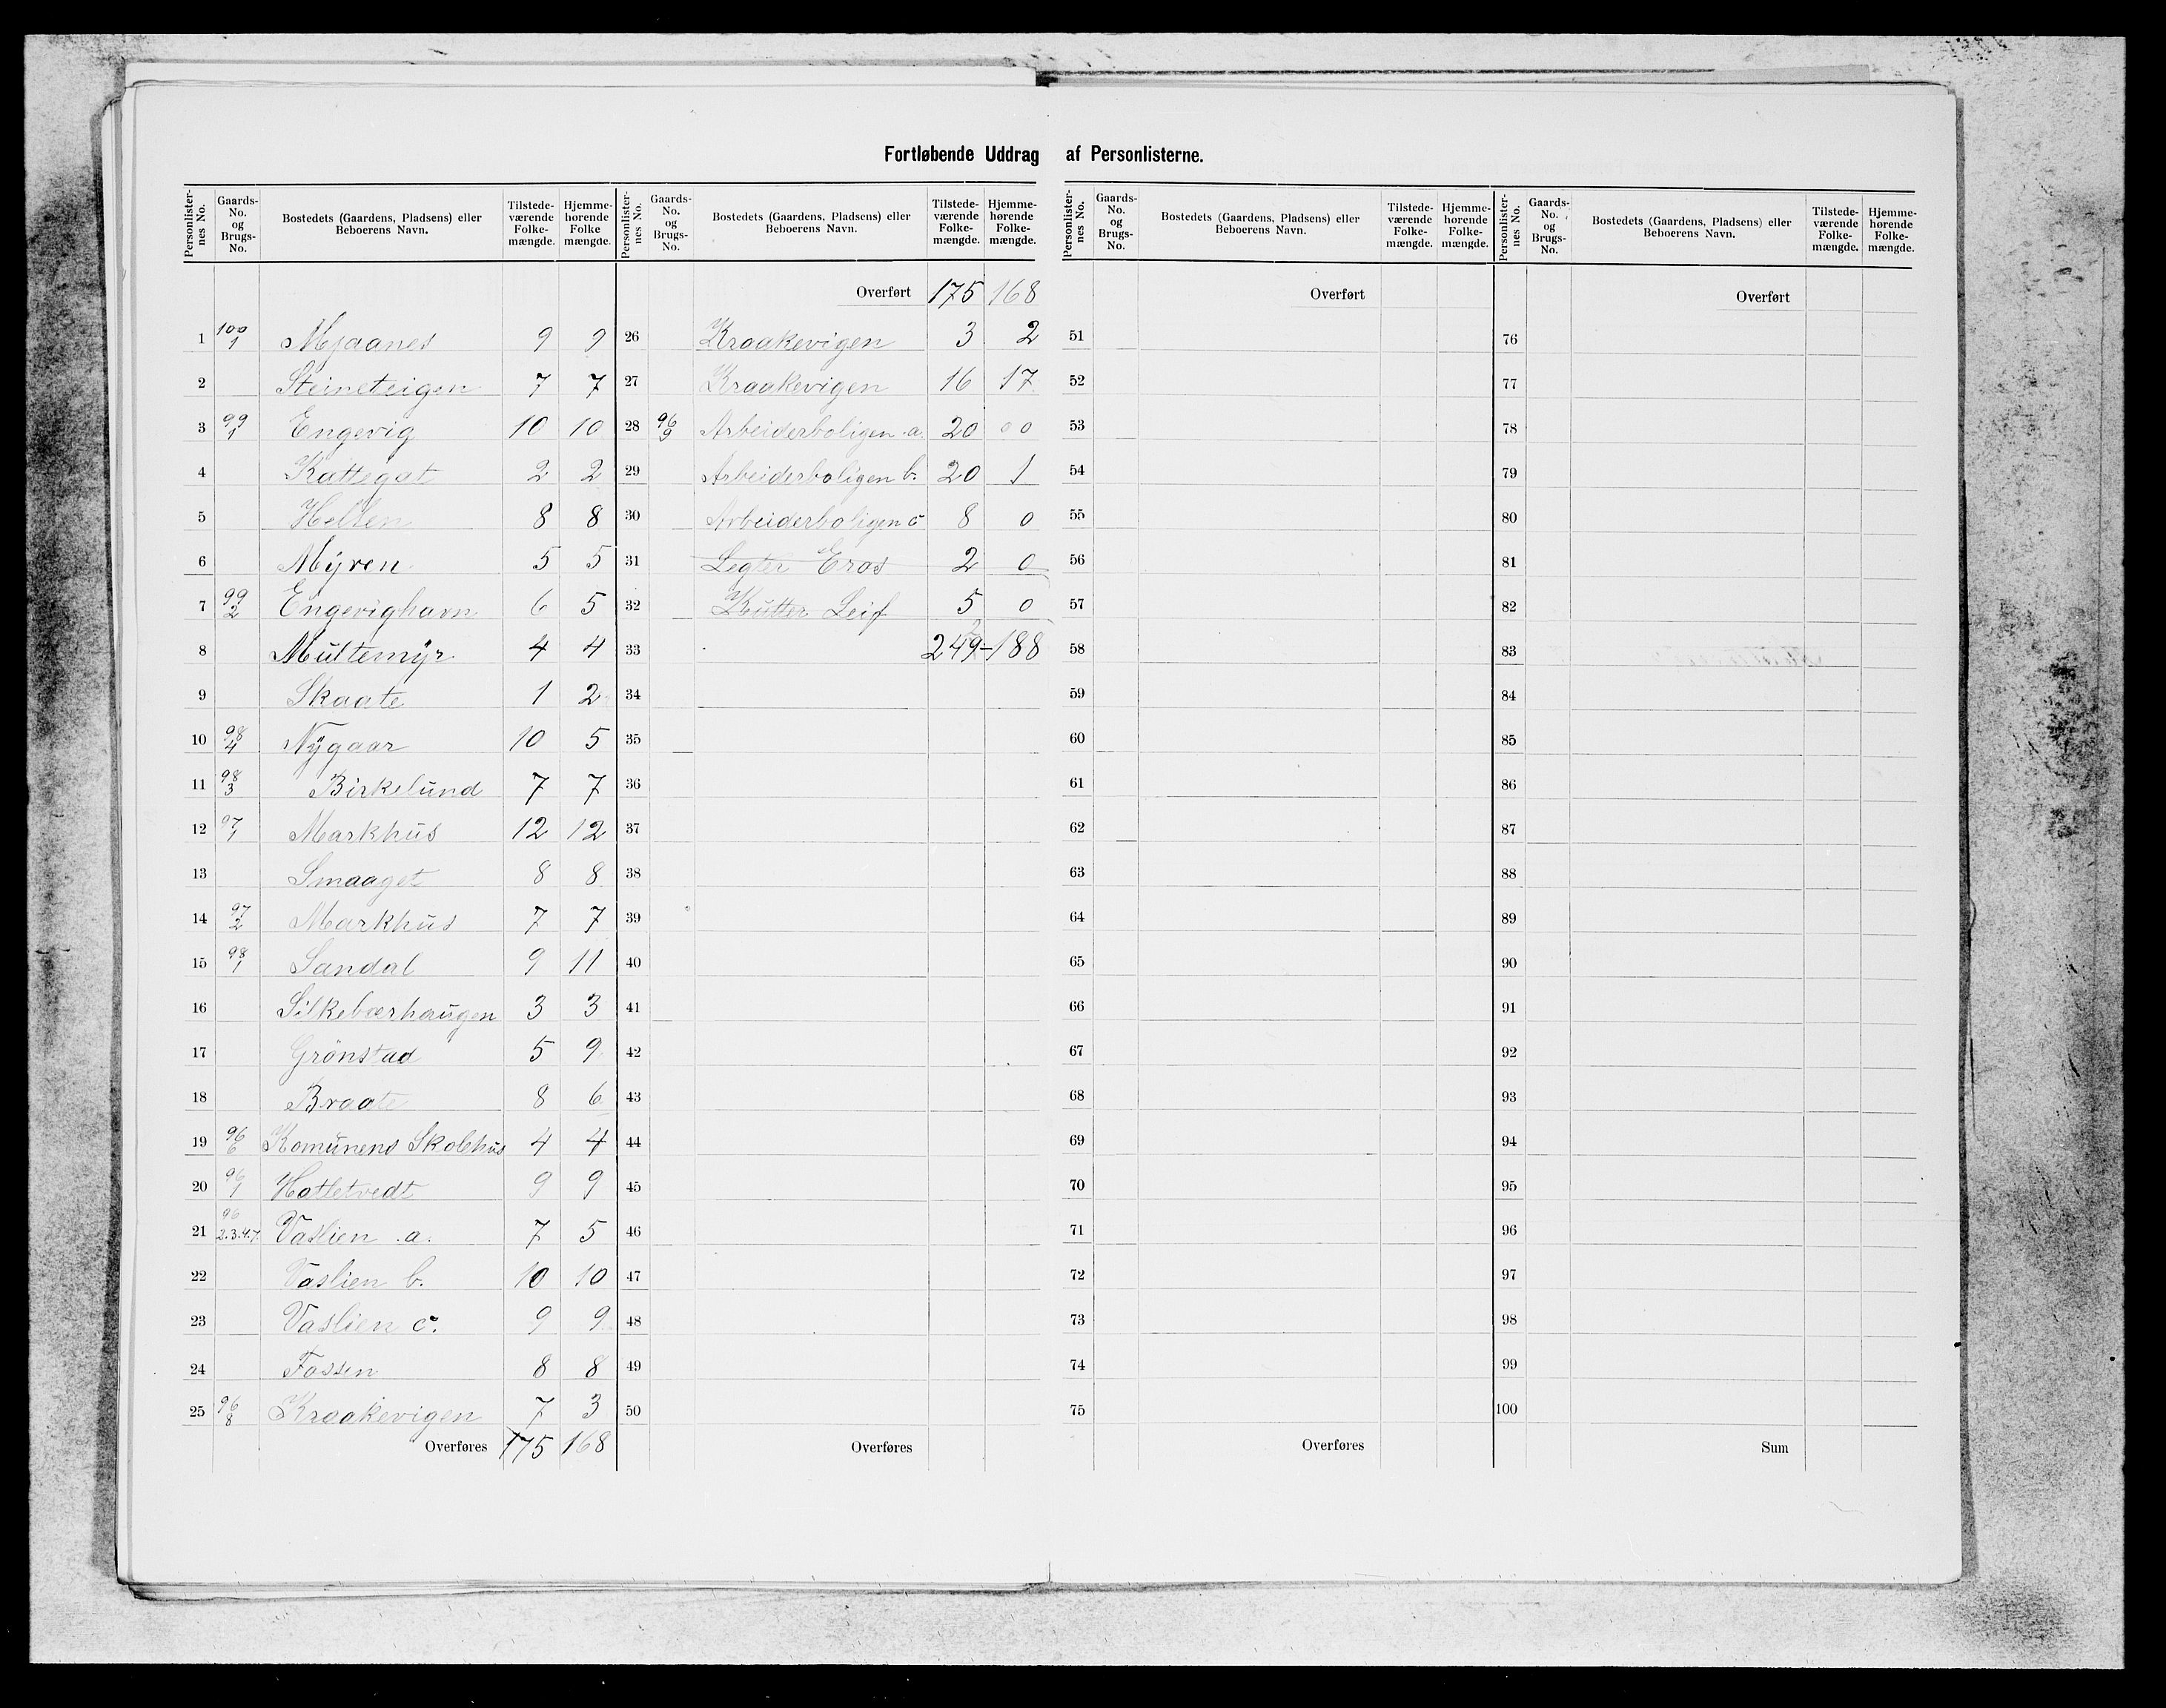 Fortløbende Uddrag af Personlisterne.
Personlister-nes No. | Gaards-No. og Brugs-No. | Bostedets (Gaardens, Pladsens) eller Beboerens Navn. | Tilstede-værende Folke-mængde. | Hjemme-hørende Folke mængde.
1 | 100/1 | Mjaanes | 9 | 9
2 | | Steineteigen | 7 | 7
3 | 99/1 | Engevig | 10 | 10
4 | | Kattegat | 2 | 2
5 | | Hellen | 8 | 8
6 | | Myren | 5 | 5
7 | 99/2 | Engevighavn | 6 | 5
8 | | Multemyr | 4 | 4
9 | | Skaate | 1 | 2
10 | 98/4 | Nygaar | 10 | 5
11 | 98/3 | Birkelund | 7 | 7
12 | 97/1 | Markhus | 12 | 12
13 | | Smaaget | 8 | 8
14 | 97/2 | Markhus | 7 | 7
15 | 98/1 | Sandal | 9 | 11
16 | | Silkebærhaugen | 3 | 3
17 | | Grönstad | 5 | 9
18 | | Braate | 8 | 6
19 | 96/6 | Komunens Skolehus | 4 | 4
20 | 96/1 | Hatletvedt | 9 | 9
21 | 96/2.3.4.7. | Vaslien a. | 7 | 5
22 | | Vaslien b. | 10 | 10
23 | | Vaslien c. | 9 | 9
24 | | Fossen | 8 | 8
25 | 96/8 | Kraakevigen | 7 | 3
Overføres 175 168
Personlister-nes No. | Gaards-No. og Brugs-No. | Bostedets (Gaardens, Pladsens) eller Beboerens Navn. | Tilstede-værende Folke-mængde. | Hjemme-hørende Folke-mængde.
Overført 175 168
26 | | Kraakevigen | 3 | 2
27 | | Kraakevigen | 16 | 17
28 | 96/9 | Arbeiderboligen a. | 20 | 0 0
29 | | Arbeiderboligen b. | 20 | 1
30 | | Arbeiderboligen c | 8 | 0
31 | | Legter Eros | 2 | 0
32 | | Kutter Leif | 5 | 0
33 | | | 249 - | 188
34
35
36
37
38
39
40
41
42
43
44
45
46
47
48
49
50
Overføres
Personlister-nes No. | Gaards-No. og Brugs-No. | Bostedets (Gaardens, Pladsens) eller Beboerens Navn. | Tilstede-værende Folke-mængde. | Hjemme-hørende Folke-mængde.
Overført
51
52
53
54
55
56
57
58
59
60
61
62
63
64
65
66
67
68
69
70
71
72
73
74
75
Overføres
Personlister-nes No. | Gaards-No. og Brugs-No. | Bostedets (Gaardens, Pladsens) eller Beboerens Navn. | Tilstede-værende Folke-mængde. | Hjemme-hørende Folke-mængde.
Overført
76
77
78
79
80
81
82
83
84
85
86
87
88
89
90
91
92
93
94
95
96
97
98
99
100
Sum